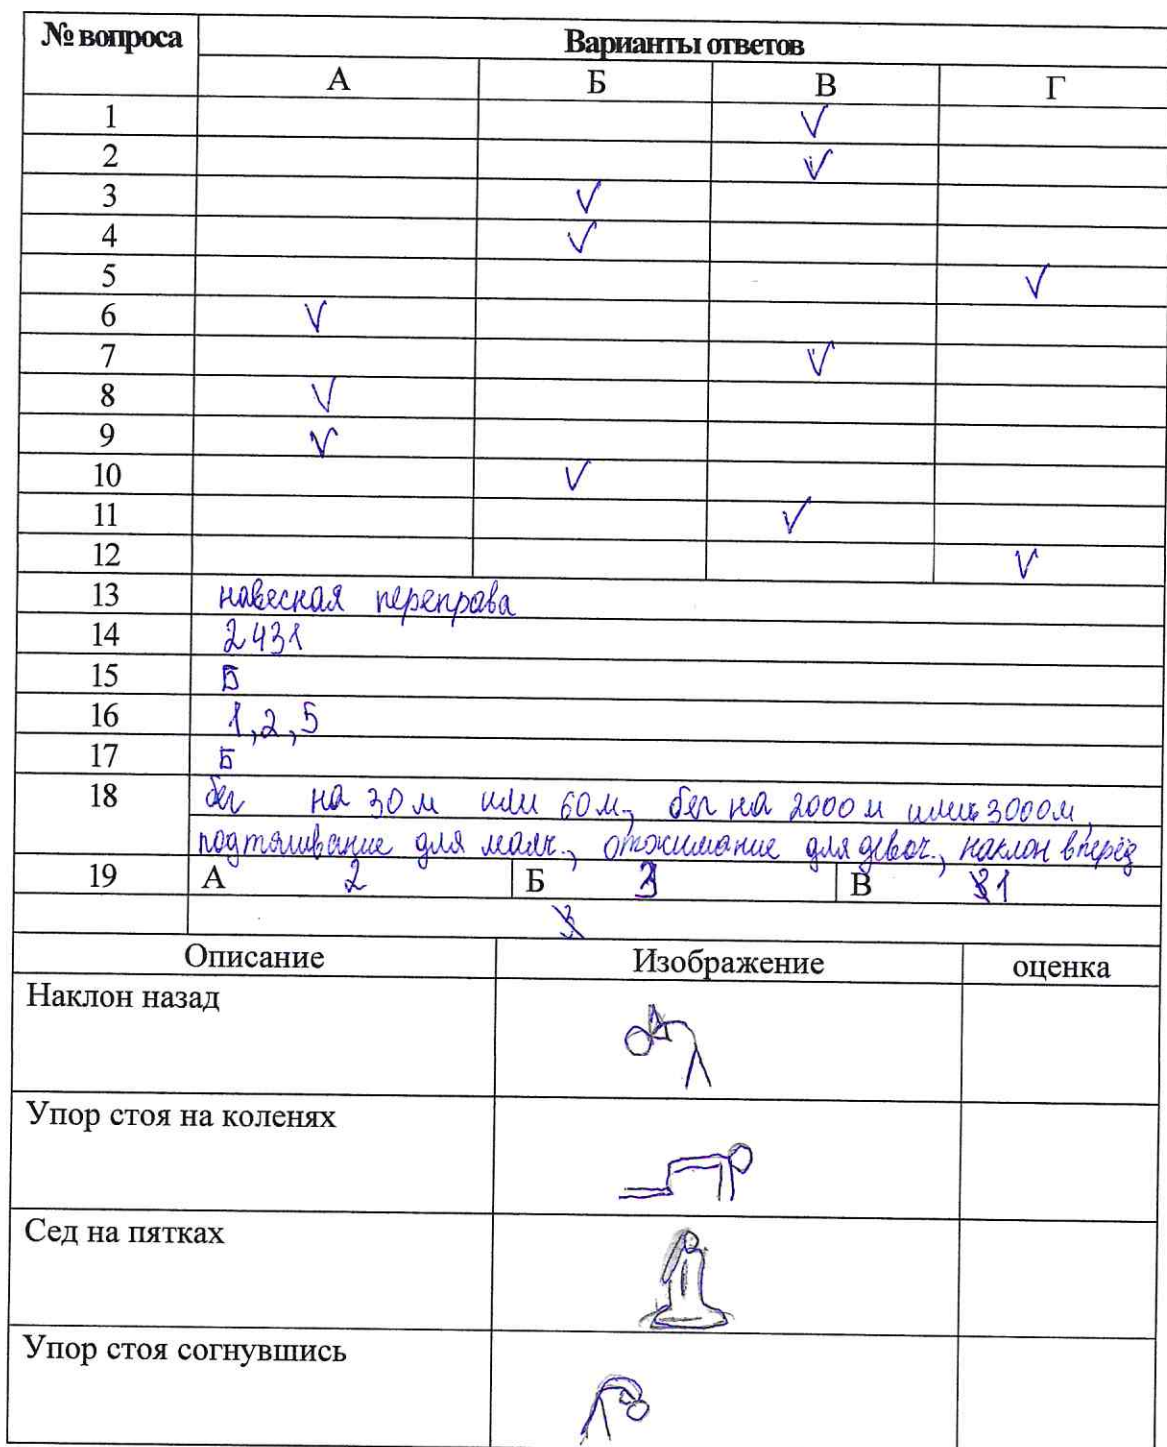 № вопроса Варианты ответов
А Б В Г
1 V
2 V
3 V
4 V
5 V
6 V
7 V
8 V
9 V
10 V
11 V
12 V
13 навесная переправа
14 2431
15 Б
16 1,2,5
17 Б
18 бег на 30 м или 60 м, бег на 2000 м или 3000 м,
подтягивание для мальч., отжимание для девоч., наклон вперёд
19 А 2 Б 3 В 1
Описание Изображение оценка
Наклон назад
Упор стоя на коленях
Сед на пятках
Упор стоя согнувшись